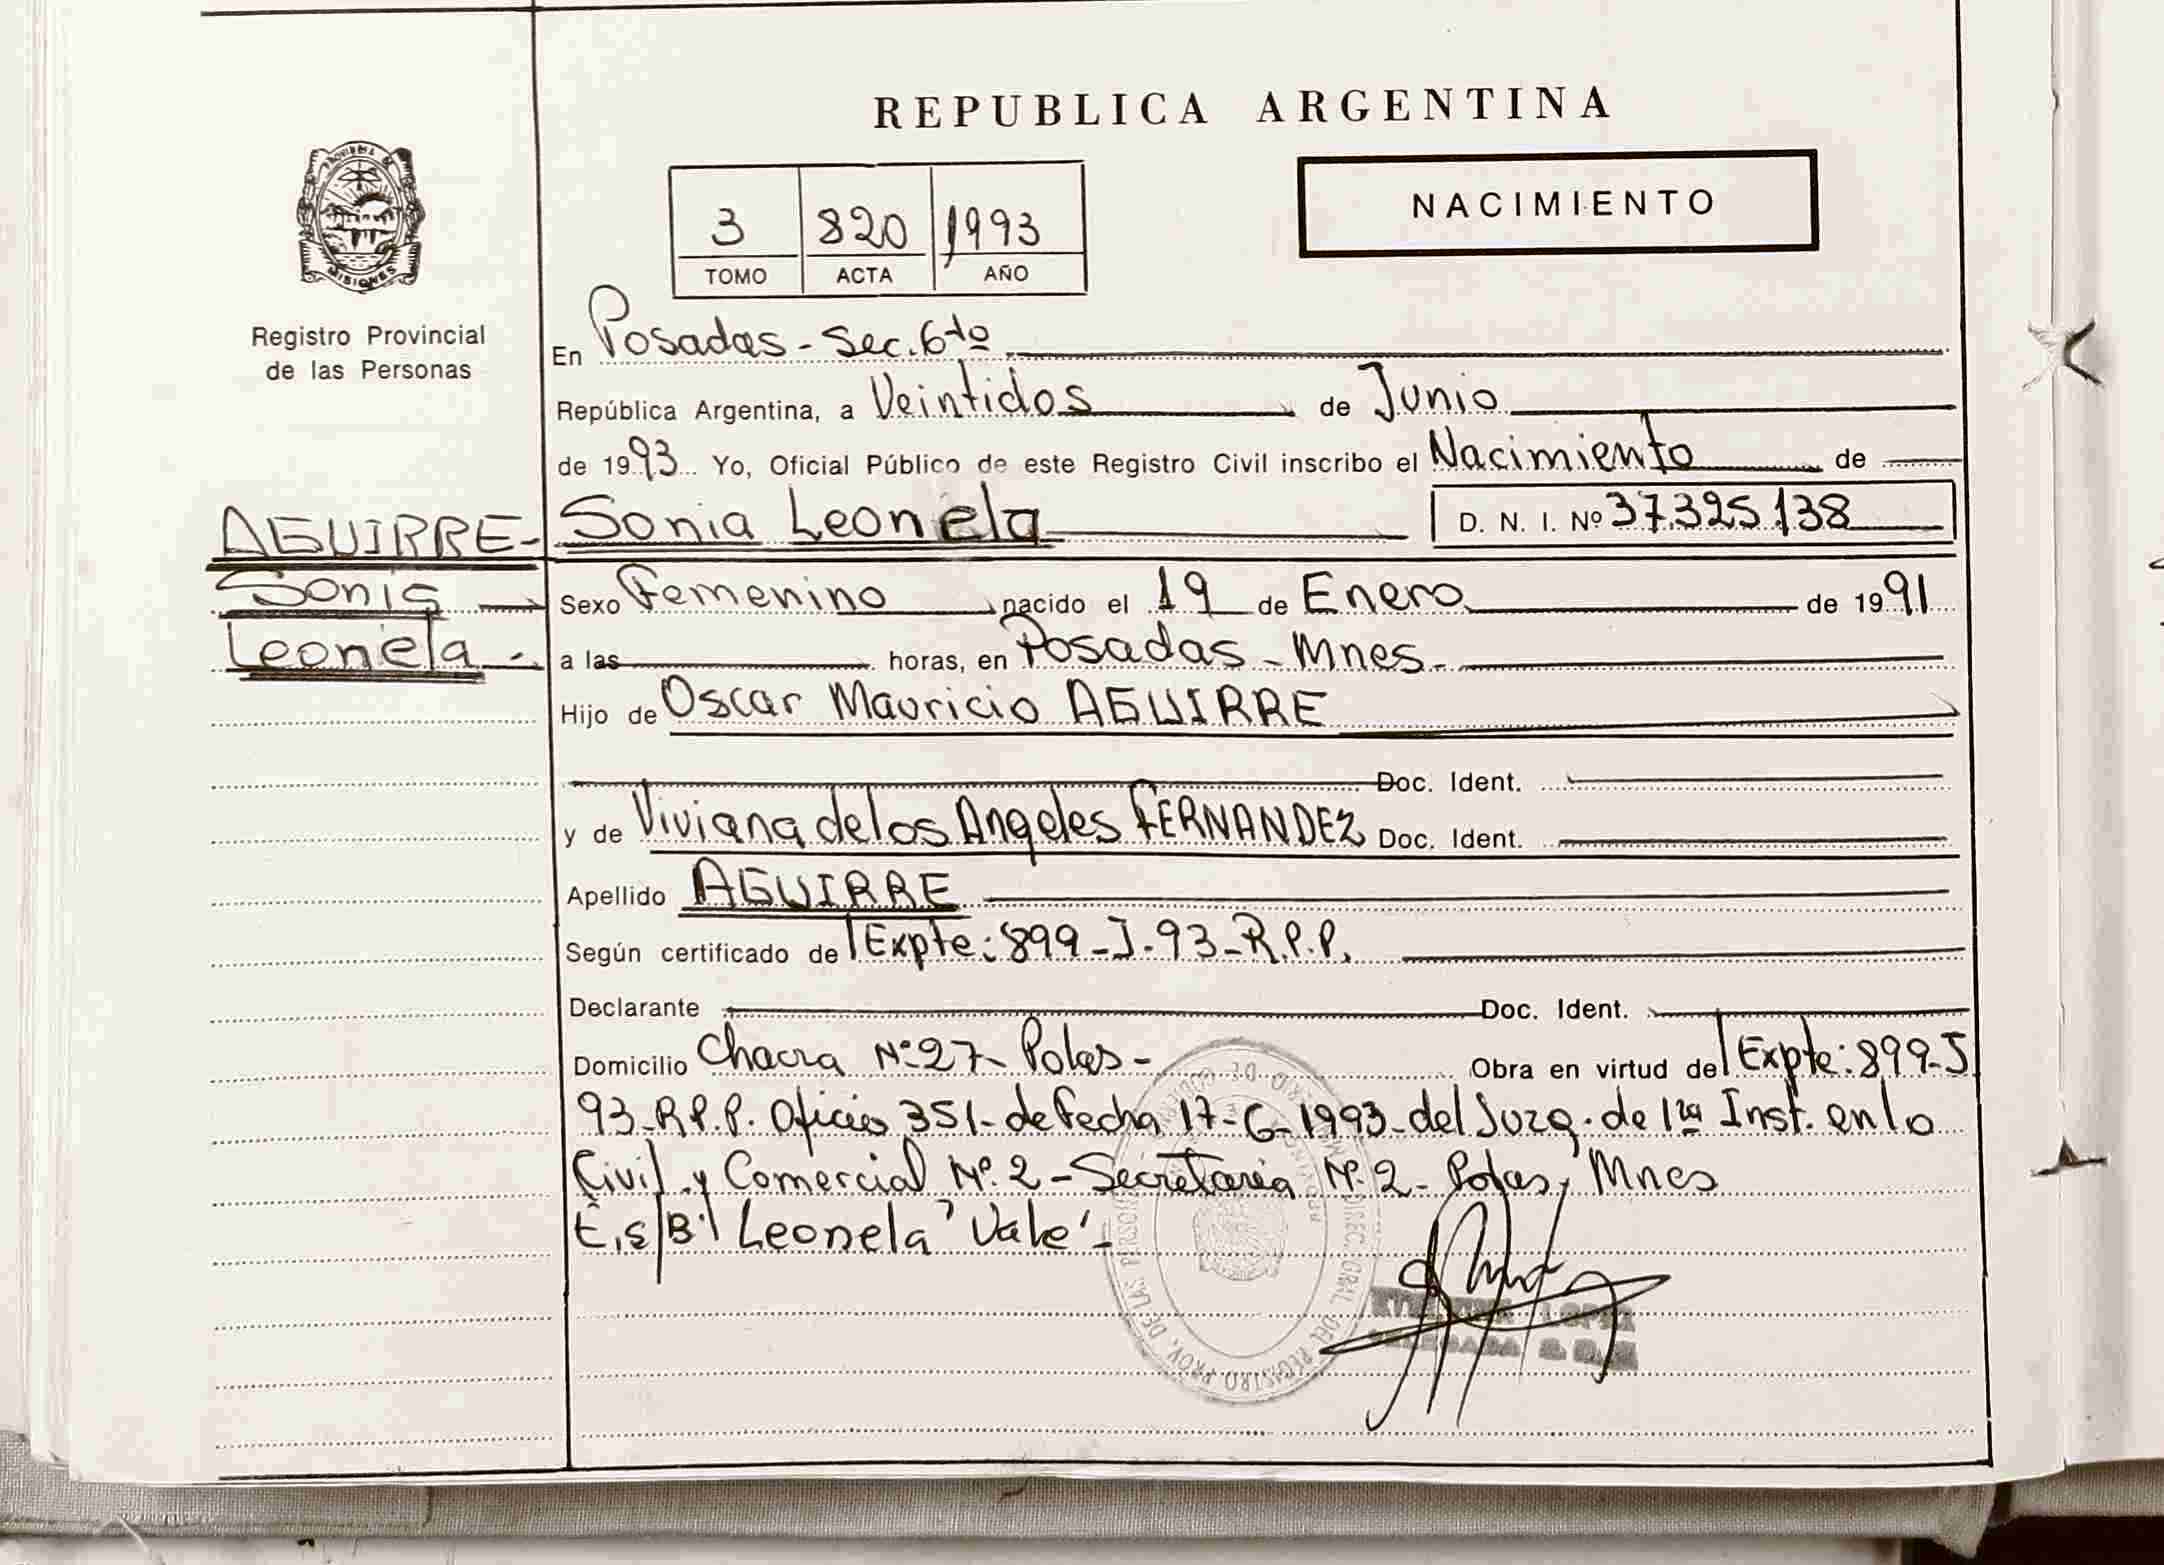 REPUBLICA ARGENTINA
NACIMIENTO
3 820 1993
TOMO ACTA AÑO
PROVINCIA DE
MISIONES
Registro Provincial
de las Personas
En Posadas - Sec. 6tº
República Argentina, a Veintidos de Junio
de 1993 Yo, Oficial Público de este Registro Civil inscribo el Nacimiento de
AGUIRRE-
Sonia
Leonela -
Sonia Leonela D. N. I. Nº 37.325.138
Sexo Femenino nacido el 19 de Enero de 1991
a las horas, en Posadas - Mnes-
Hijo de Oscar Mauricio AGUIRRE
Doc. Ident.
y de Viviana de los Angeles FERNANDEZ Doc. Ident.
Apellido AGUIRRE
Según certificado de Expte: 899-J-93-R.P.P.
Declarante Doc. Ident.
Domicilio Chacra Nº 27- Pdas- Obra en virtud de Expte: 899-J
93-R.P.P. Oficio 351- de Fecha 17-6-1993- del Juzg. de 1ra Inst. en lo
Civil y Comercial Nº 2 - Secretaria Nº 2- Pdas, Mnes
E.s/B: Leonela "Vale"-
DIREC. GRAL. DEL REGISTRO PROV. DE LAS PERSONAS
LOPEZ